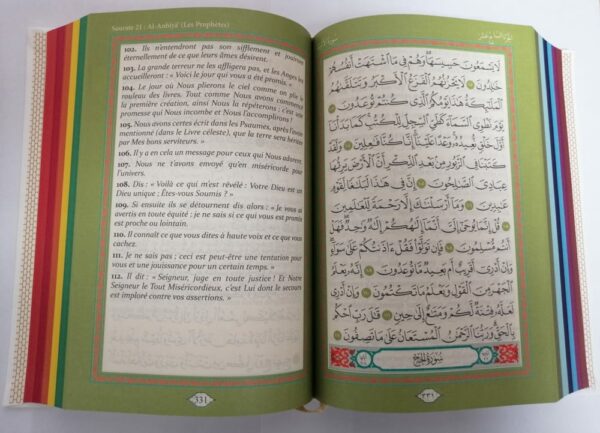 Sourate 21 : Al-Anbiyâ' (Les Prophètes)
102. Ils n'entendront pas son sifflement et jouiront
éternellement de ce que leurs âmes désirent.
103. La grande terreur ne les affligera pas, et les Anges les
accueilleront : « Voici le jour qui vous a été promis. »
104. Le jour où Nous plierons le ciel comme on plie le
rouleau des livres. Tout comme Nous avons commencé
la première création, ainsi Nous la répéterons; c'est une
promesse qui Nous incombe et Nous l'accomplirons !
105. Nous avons certes écrit dans les Psaumes, après l'avoir
mentionné (dans le Livre céleste), que la terre sera héritée
par Mes bons serviteurs. »
106. Il y a en cela un message pour ceux qui Nous adorent.
107. Nous ne t'avons envoyé qu'en miséricorde pour
l'univers.
108. Dis : « Voilà ce qui m'est révélé : Votre Dieu est un
Dieu unique ; Êtes-vous Soumis ? »
109. Si ensuite ils se détournent dis alors : « Je vous ai
avertis en toute équité ; je ne sais si ce qui vous est promis
est proche ou lointain.
110. Il connaît ce que vous dites à haute voix et ce que vous
cachez.
111. Je ne sais pas ; ceci est peut-être une tentation pour
vous et une jouissance pour un certain temps. »
112. Il dit : « Seigneur, juge en toute justice ! Et Notre
Seigneur le Tout Miséricordieux, c'est Lui dont le secours
est imploré contre vos assertions. »
331
لَا يَسْمَعُونَ حَسِيسَهَا وَهُمْ فِي مَا اشْتَهَتْ أَنفُسُهُمْ
خَالِدُونَ ١٠٢ لَا يَحْزُنُهُمُ الْفَزَعُ الْأَكْبَرُ وَتَتَلَقَّاهُمُ
الْمَلَائِكَةُ هَٰذَا يَوْمُكُمُ الَّذِي كُنتُمْ تُوعَدُونَ ١٠٣
يَوْمَ نَطْوِي السَّمَاءَ كَطَيِّ السِّجِلِّ لِلْكُتُبِ كَمَا بَدَأْنَا
أَوَّلَ خَلْقٍ نُّعِيدُهُ وَعْدًا عَلَيْنَا إِنَّا كُنَّا فَاعِلِينَ ١٠٤ وَلَقَدْ
كَتَبْنَا فِي الزَّبُورِ مِن بَعْدِ الذِّكْرِ أَنَّ الْأَرْضَ يَرِثُهَا
عِبَادِيَ الصَّالِحُونَ ١٠٥ إِنَّ فِي هَٰذَا لَبَلَاغًا لِّقَوْمٍ
عَابِدِينَ ١٠٦ وَمَا أَرْسَلْنَاكَ إِلَّا رَحْمَةً لِّلْعَالَمِينَ
١٠٧ قُلْ إِنَّمَا يُوحَىٰ إِلَيَّ أَنَّمَا إِلَٰهُكُمْ إِلَٰهٌ وَاحِدٌ فَهَلْ
أَنتُم مُّسْلِمُونَ ١٠٨ فَإِن تَوَلَّوْا فَقُلْ آذَنتُكُمْ عَلَىٰ سَوَاءٍ
وَإِنْ أَدْرِي أَقَرِيبٌ أَم بَعِيدٌ مَّا تُوعَدُونَ ١٠٩ إِنَّهُ يَعْلَمُ
الْجَهْرَ مِنَ الْقَوْلِ وَيَعْلَمُ مَا تَكْتُمُونَ ١١٠ وَإِنْ أَدْرِي
لَعَلَّهُ فِتْنَةٌ لَّكُمْ وَمَتَاعٌ إِلَىٰ حِينٍ ١١١ قَالَ رَبِّ احْكُم
بِالْحَقِّ وَرَبُّنَا الرَّحْمَٰنُ الْمُسْتَعَانُ عَلَىٰ مَا تَصِفُونَ ١١٢
سُورَةُ الْحَجِّ
٣٣١